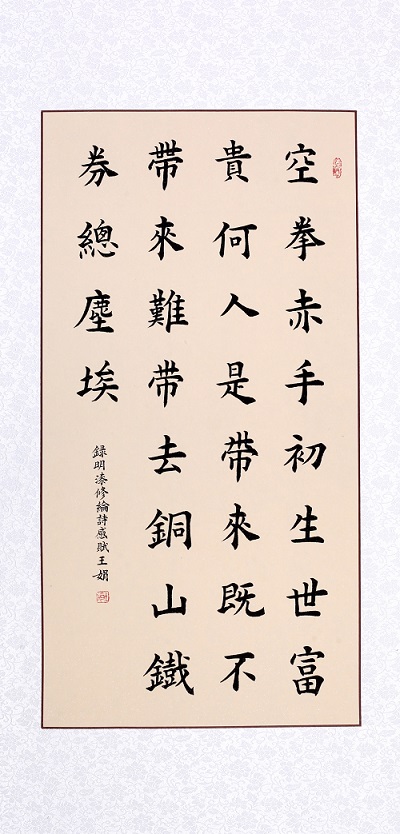 空拳赤手初生世富
貴何人是帶來既不
帶來難帶去銅山鐵
券總塵埃
録明漆修綸詩感賦王娟